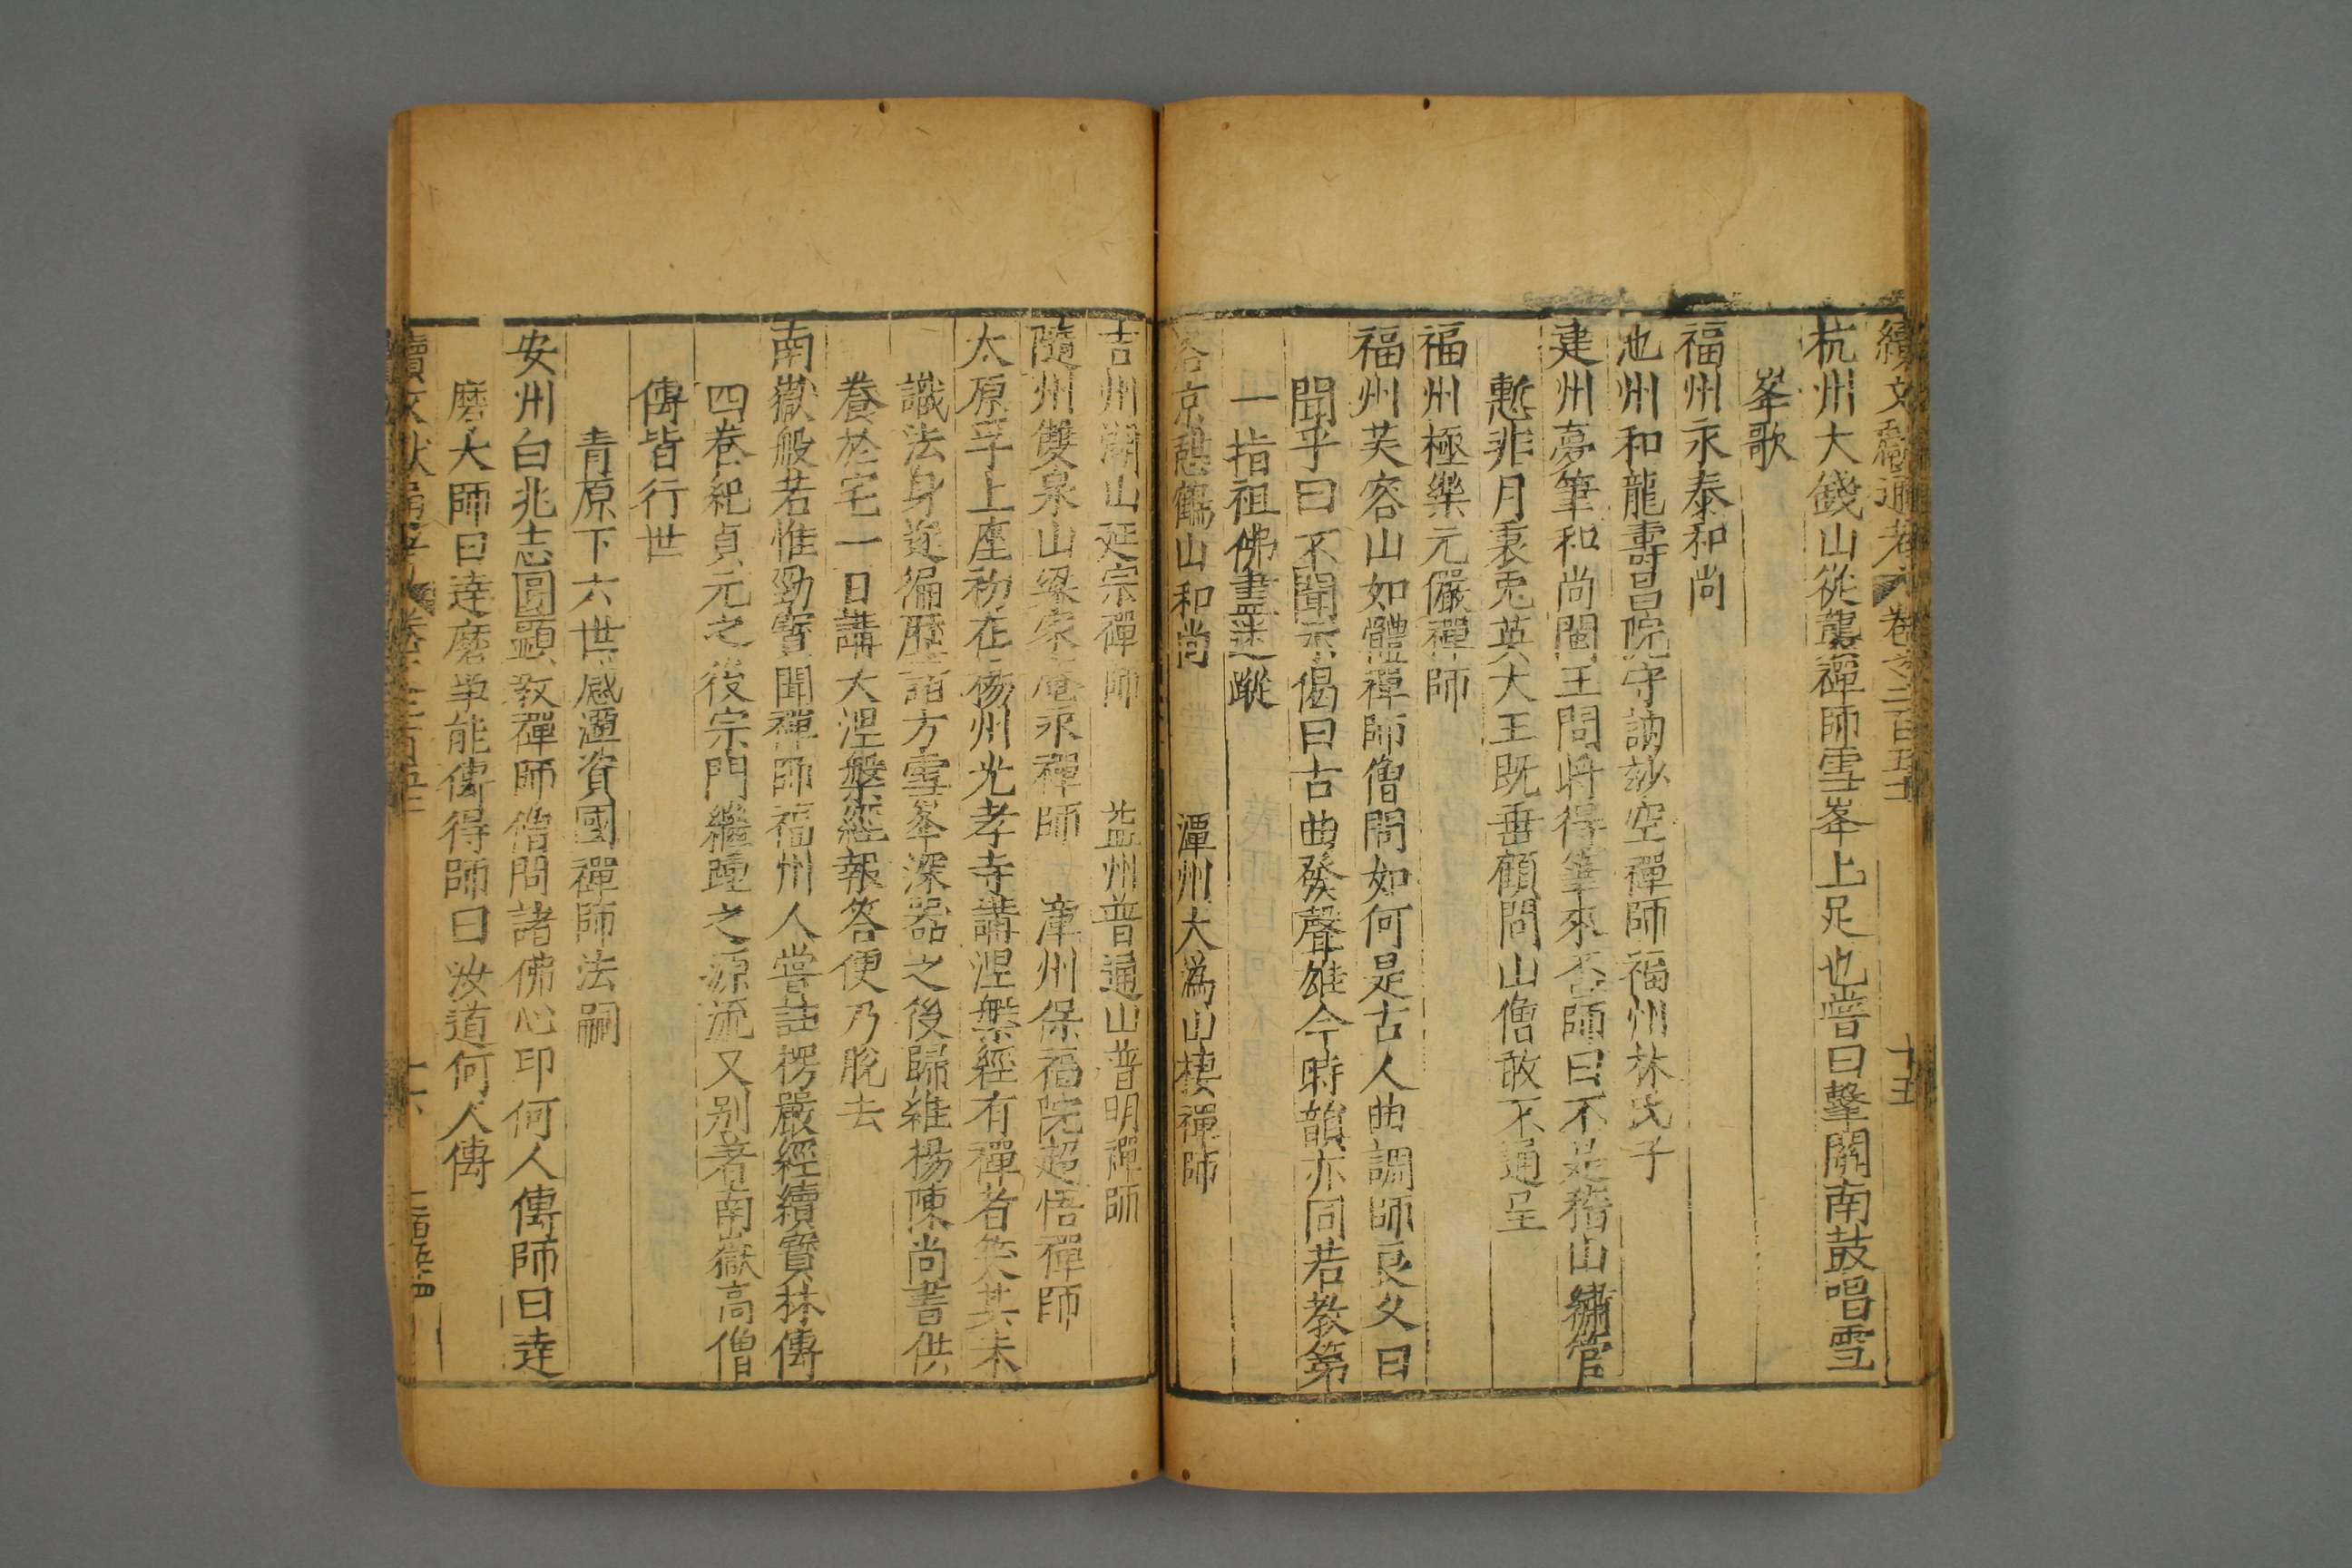 續文獻通考 卷之二百五十 十五
杭州大錢山從襲禪師雪峯上足也嘗曰擊關南鼓唱雪
峯歌
福州永泰和尚
池州和龍壽昌院守訥妙空禪師福州林氏子
建州夢筆和尚閩王問將得筆來否師曰不是稽山繡管
慙非月裏兎英大王既垂顧問山僧敢不通呈
福州極樂元儼禪師
福州芙容山如體禪師僧問如何是古人曲調師良久曰
聞乎曰不聞示偈曰古曲發聲雄今時韻亦同若教第
一指祖佛盡迷蹤
洛京憩鶴山和尚 潭州大溈山棲禪師
吉州潮山延宗禪師 益州普通山普明禪師
隨州雙泉山梁家庵永禪師 漳州保福院超悟禪師
太原孚上座初在揚州光孝寺講涅槃經有禪者笑其未
識法身遂徧歷諸方雪峯深器之後歸維揚陳尚書供
養於宅一日講大涅槃經報答便乃脫去
南嶽般若惟勁寶聞禪師福州人嘗註楞嚴經續寶林傳
四卷紀貞元之後宗門繼踵之源流又別著南嶽高僧
傳皆行世
青原下六世感潭資國禪師法嗣
安州白兆志圓顯教禪師僧問諸佛心印何人傳師曰達
磨大師曰達磨爭能傳得師曰汝道何人傳
續文獻通考 卷之二百五十 十六